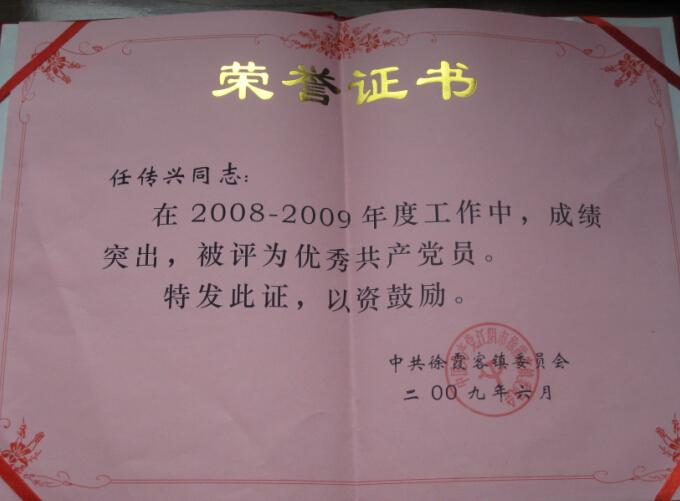 荣誉证书
任传兴同志：
在2008-2009年度工作中，成绩
突出，被评为优秀共产党员。
特发此证，以资鼓励。
中共徐霞客镇委员会
二00九年六月